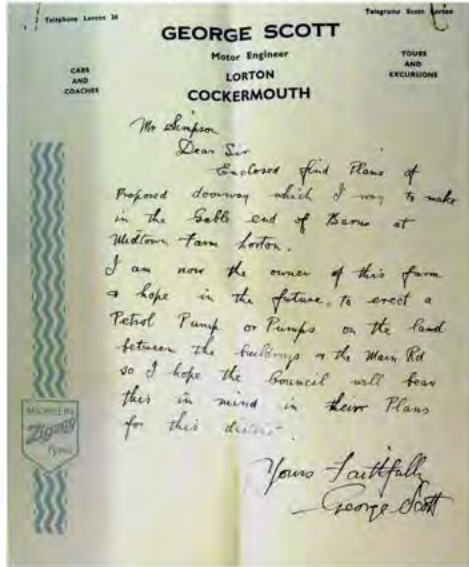 Telephone Lorton 38
Telegrams Scott Lorton
GEORGE SCOTT
Motor Engineer
LORTON
COCKERMOUTH
CARS
AND
COACHES
TOURS
AND
EXCURSIONS
Mr Simpson
Dear Sir
Enclosed find Plans of
Proposed doorway which I way to make
in the Gable end of Barns at
Midtown Farm Lorton.
I am now the owner of this farm
& hope in the future, to erect a
Petrol Pump or Pumps on the land
between the buildings & the Main Rd
so I hope the Council will bear
this in mind in their Plans
for this district.
Yours Faithfully
George Scott
MICHELIN
Zigzag
Tyres